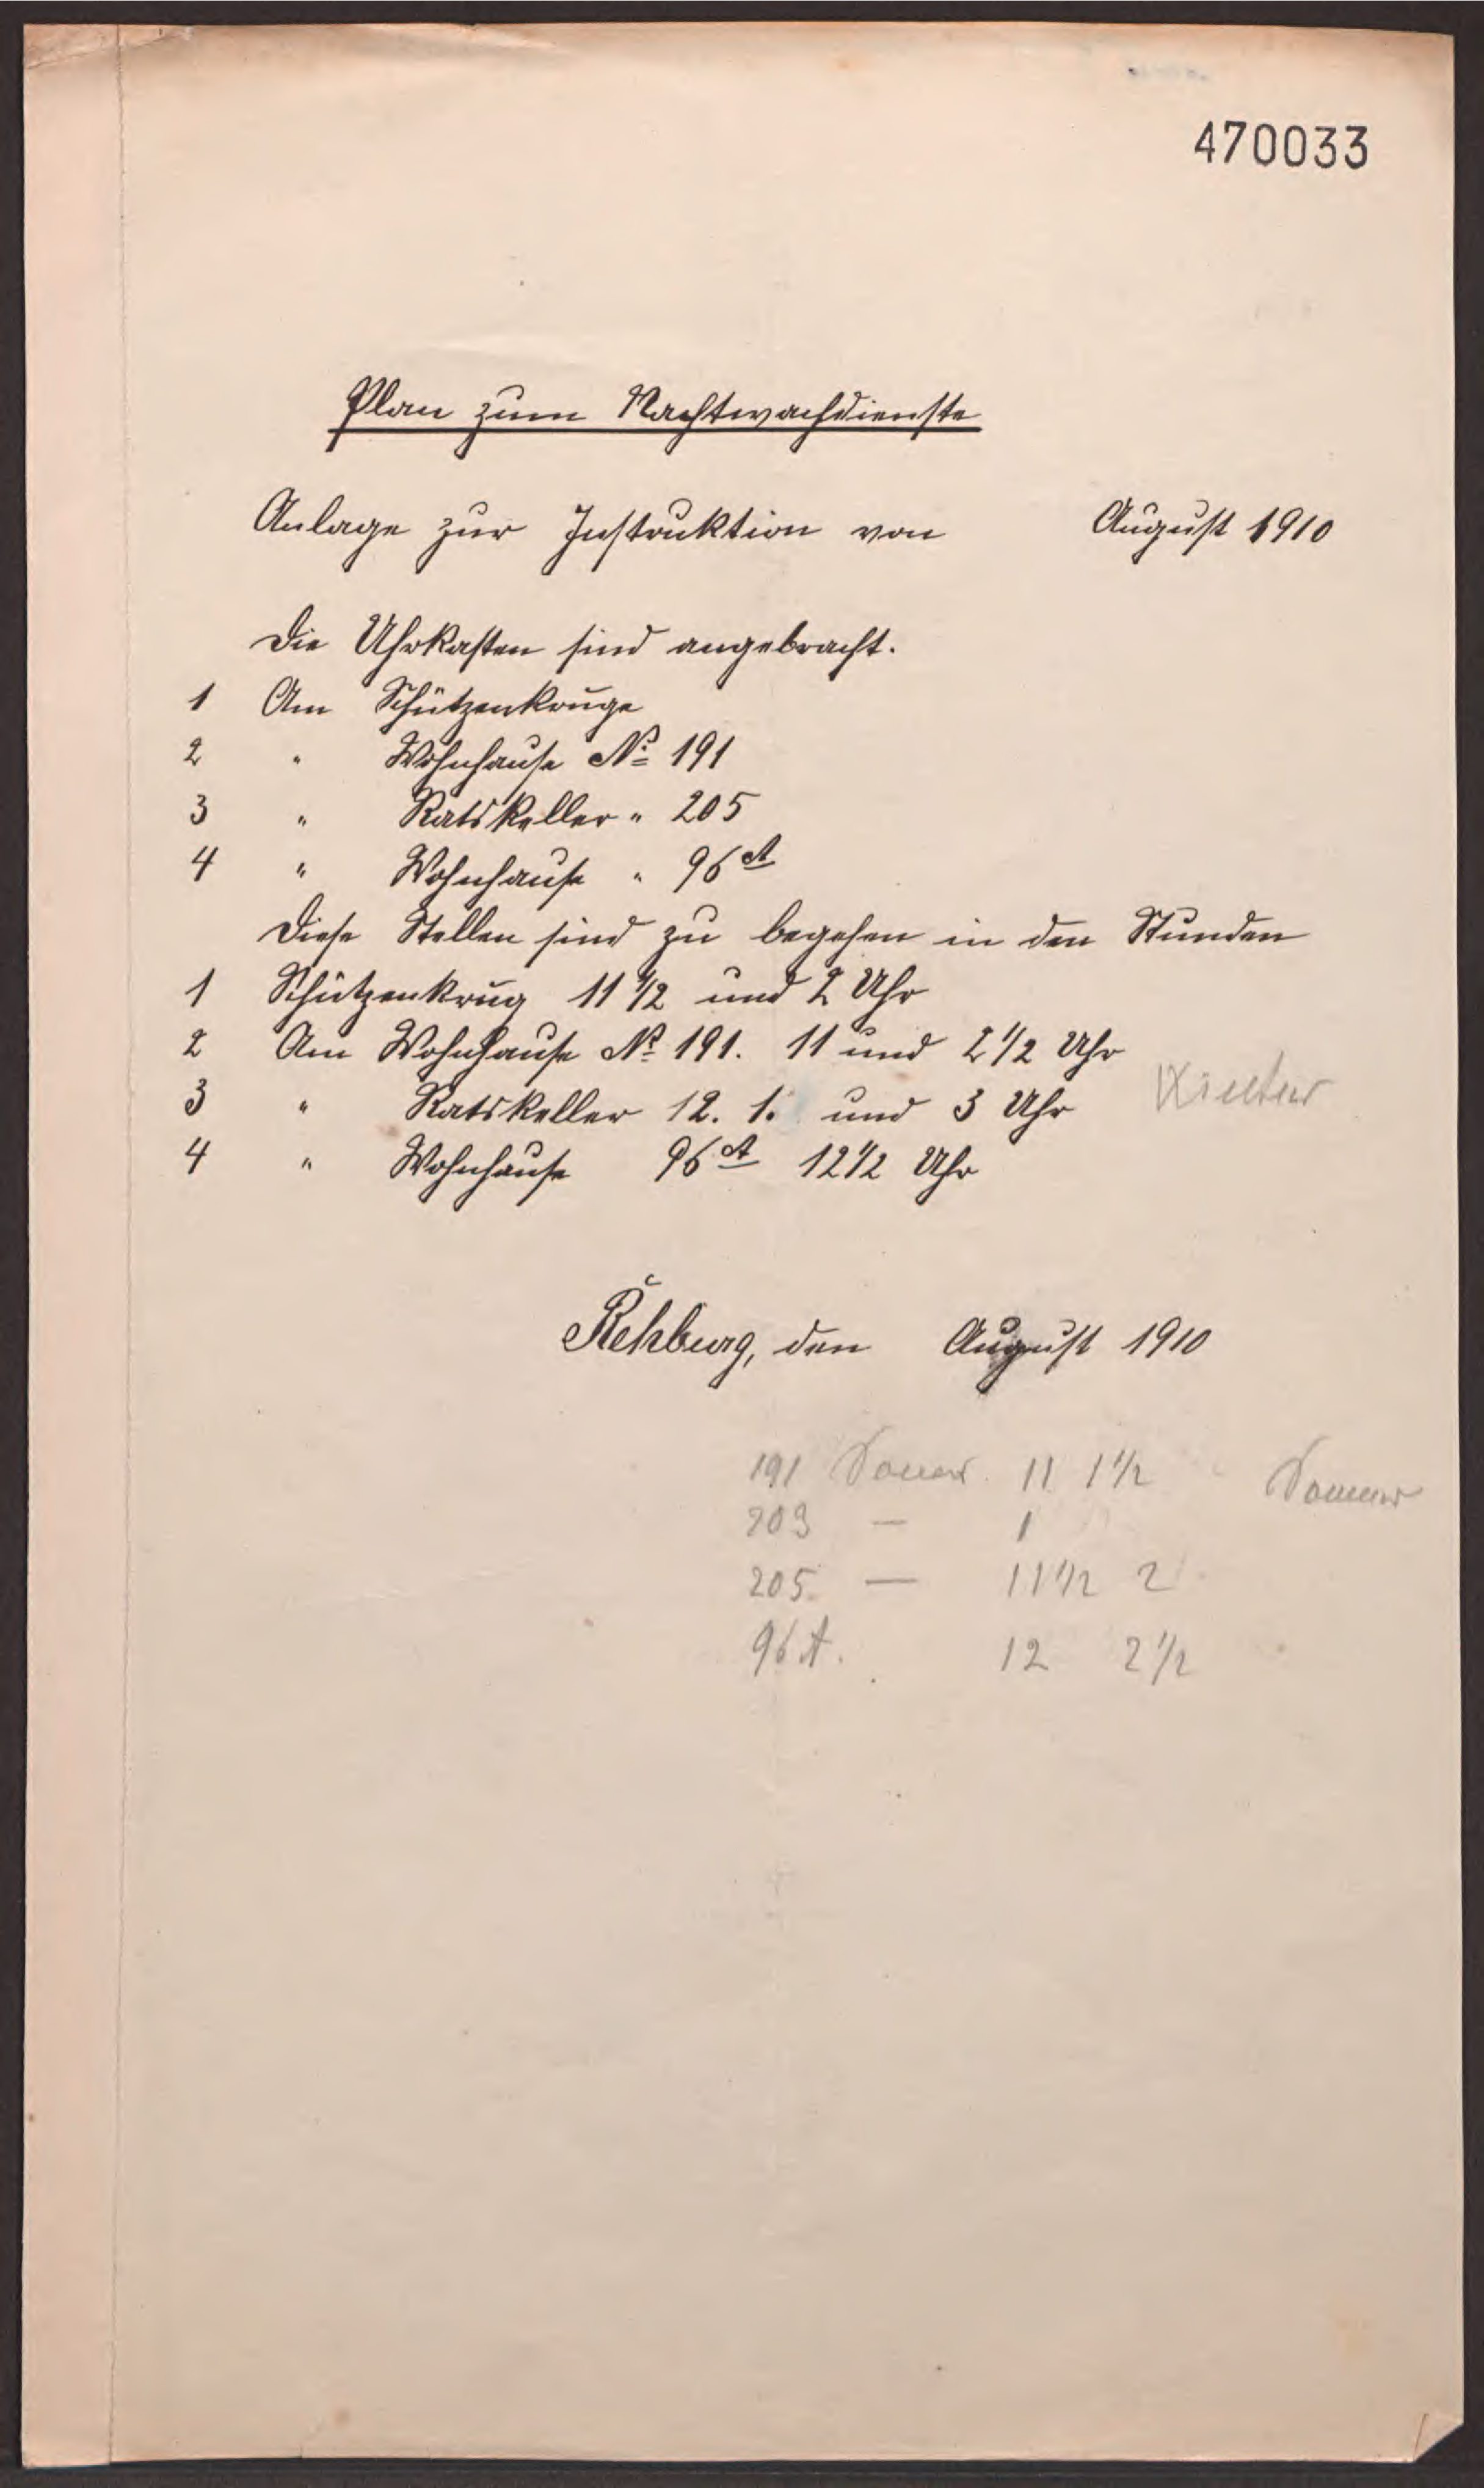 470033
Plan zum Nachtwachdienste
Anlage zur Instruktion von August 1910
Die Uhrkasten sind angebracht.
1 Am Schützenkruge
2 " Wohnhause No 191
3 " Ratskeller " 205
4 " Wohnhause " 96A
Diese Stellen sind zu begehen in den Stunden
1 Schützenkrug 11 1/2 und 2 Uhr
2 Am Wohnhause No 191. 11 und 2 1/2 Uhr
3 " Ratskeller 12. 1. und 3 Uhr Winter
4 " Wohnhause 96A 12 1/2 Uhr
Rehburg, den August 1910
191 11 1 1/2 Sommer
203 — 1
205. — 11 1/2 2
96A. 12 2 1/2